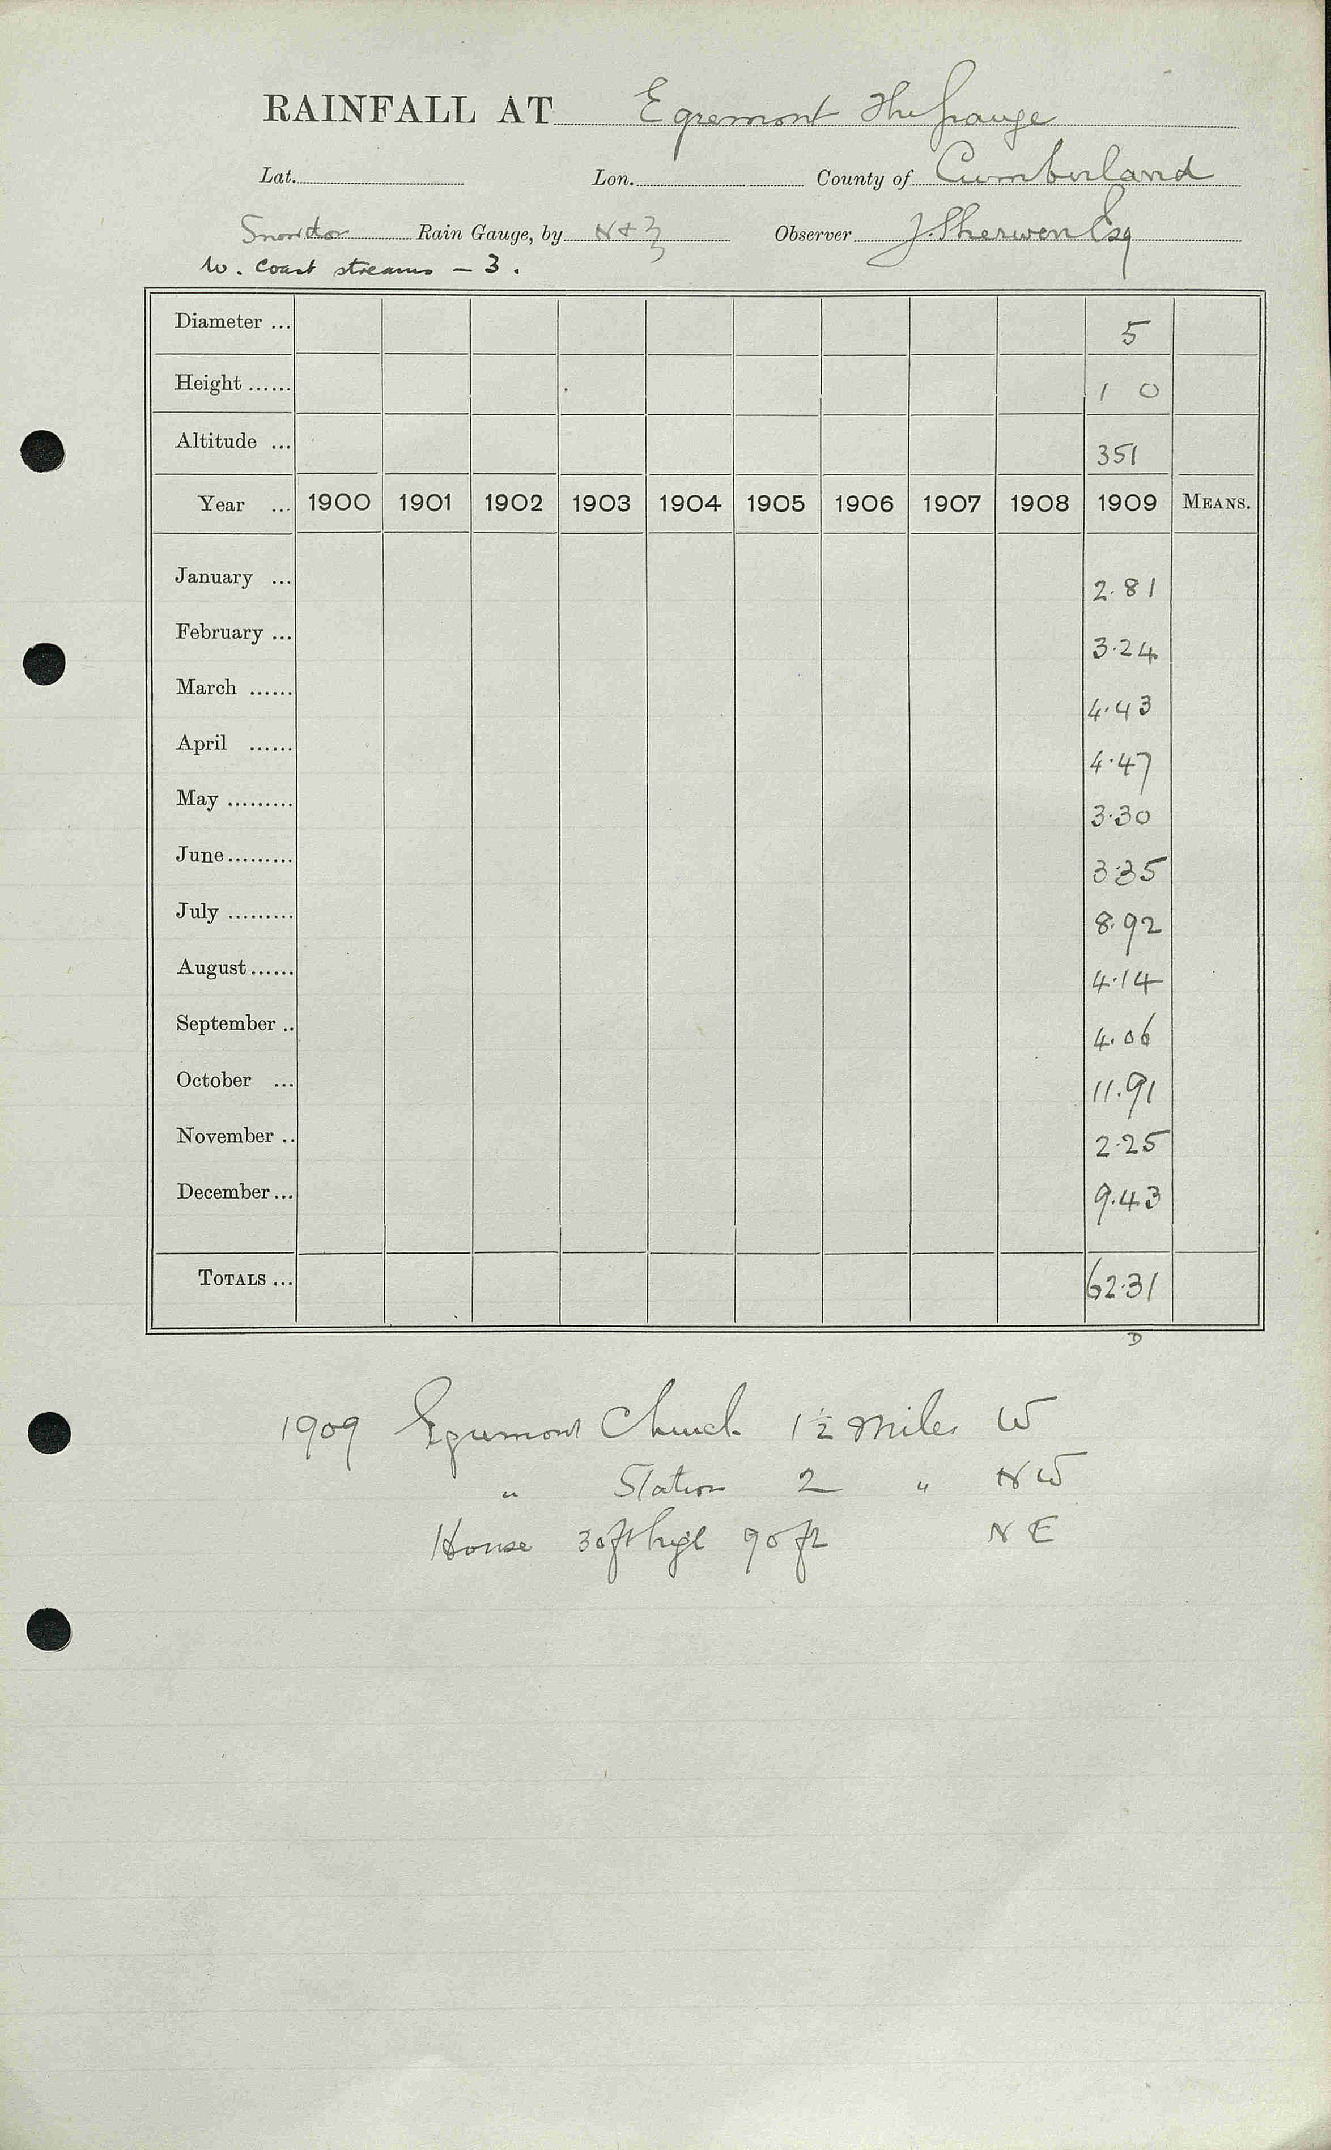 RAINFALL AT Egremont The Grange
Lat. Lon. County of Cumberland
Snowdon Rain Gauge, by N & Z Observer J. Sherwen Esq
W. Coast streams – 3.
Diameter ... 5
Height ...... 1 0
Altitude ... 351
Year ... 1900 1901 1902 1903 1904 1905 1906 1907 1908 1909 MEANS.
January ... 2.81
February ... 3.24
March ...... 4.43
April ...... 4.47
May ......... 3.30
June......... 3.35
July ......... 8.92
August...... 4.14
September .. 4.06
October ... 11.91
November .. 2.25
December... 9.43
TOTALS ... 62.31
D
1909 Egremont Church 1½ Miles W
" Station 2 " NW
House 30ft high 90 ft NE